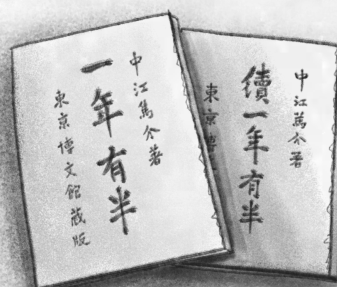 中江篤介著
一年有半
東京博文館蔵版
中江篤介著
續一年有半
東京博